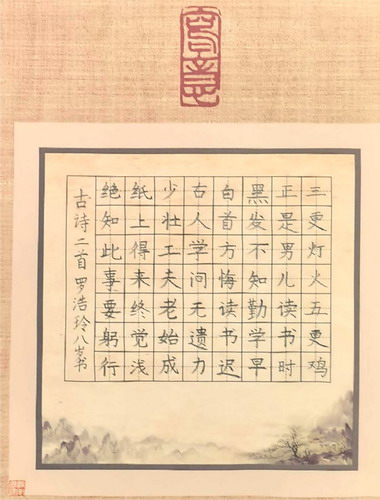 三更灯火五更鸡
正是男儿读书时
黑发不知勤学早
白首方悔读书迟
古人学问无遗力
少壮工夫老始成
纸上得来终觉浅
绝知此事要躬行
古诗二首罗浩玲八岁书